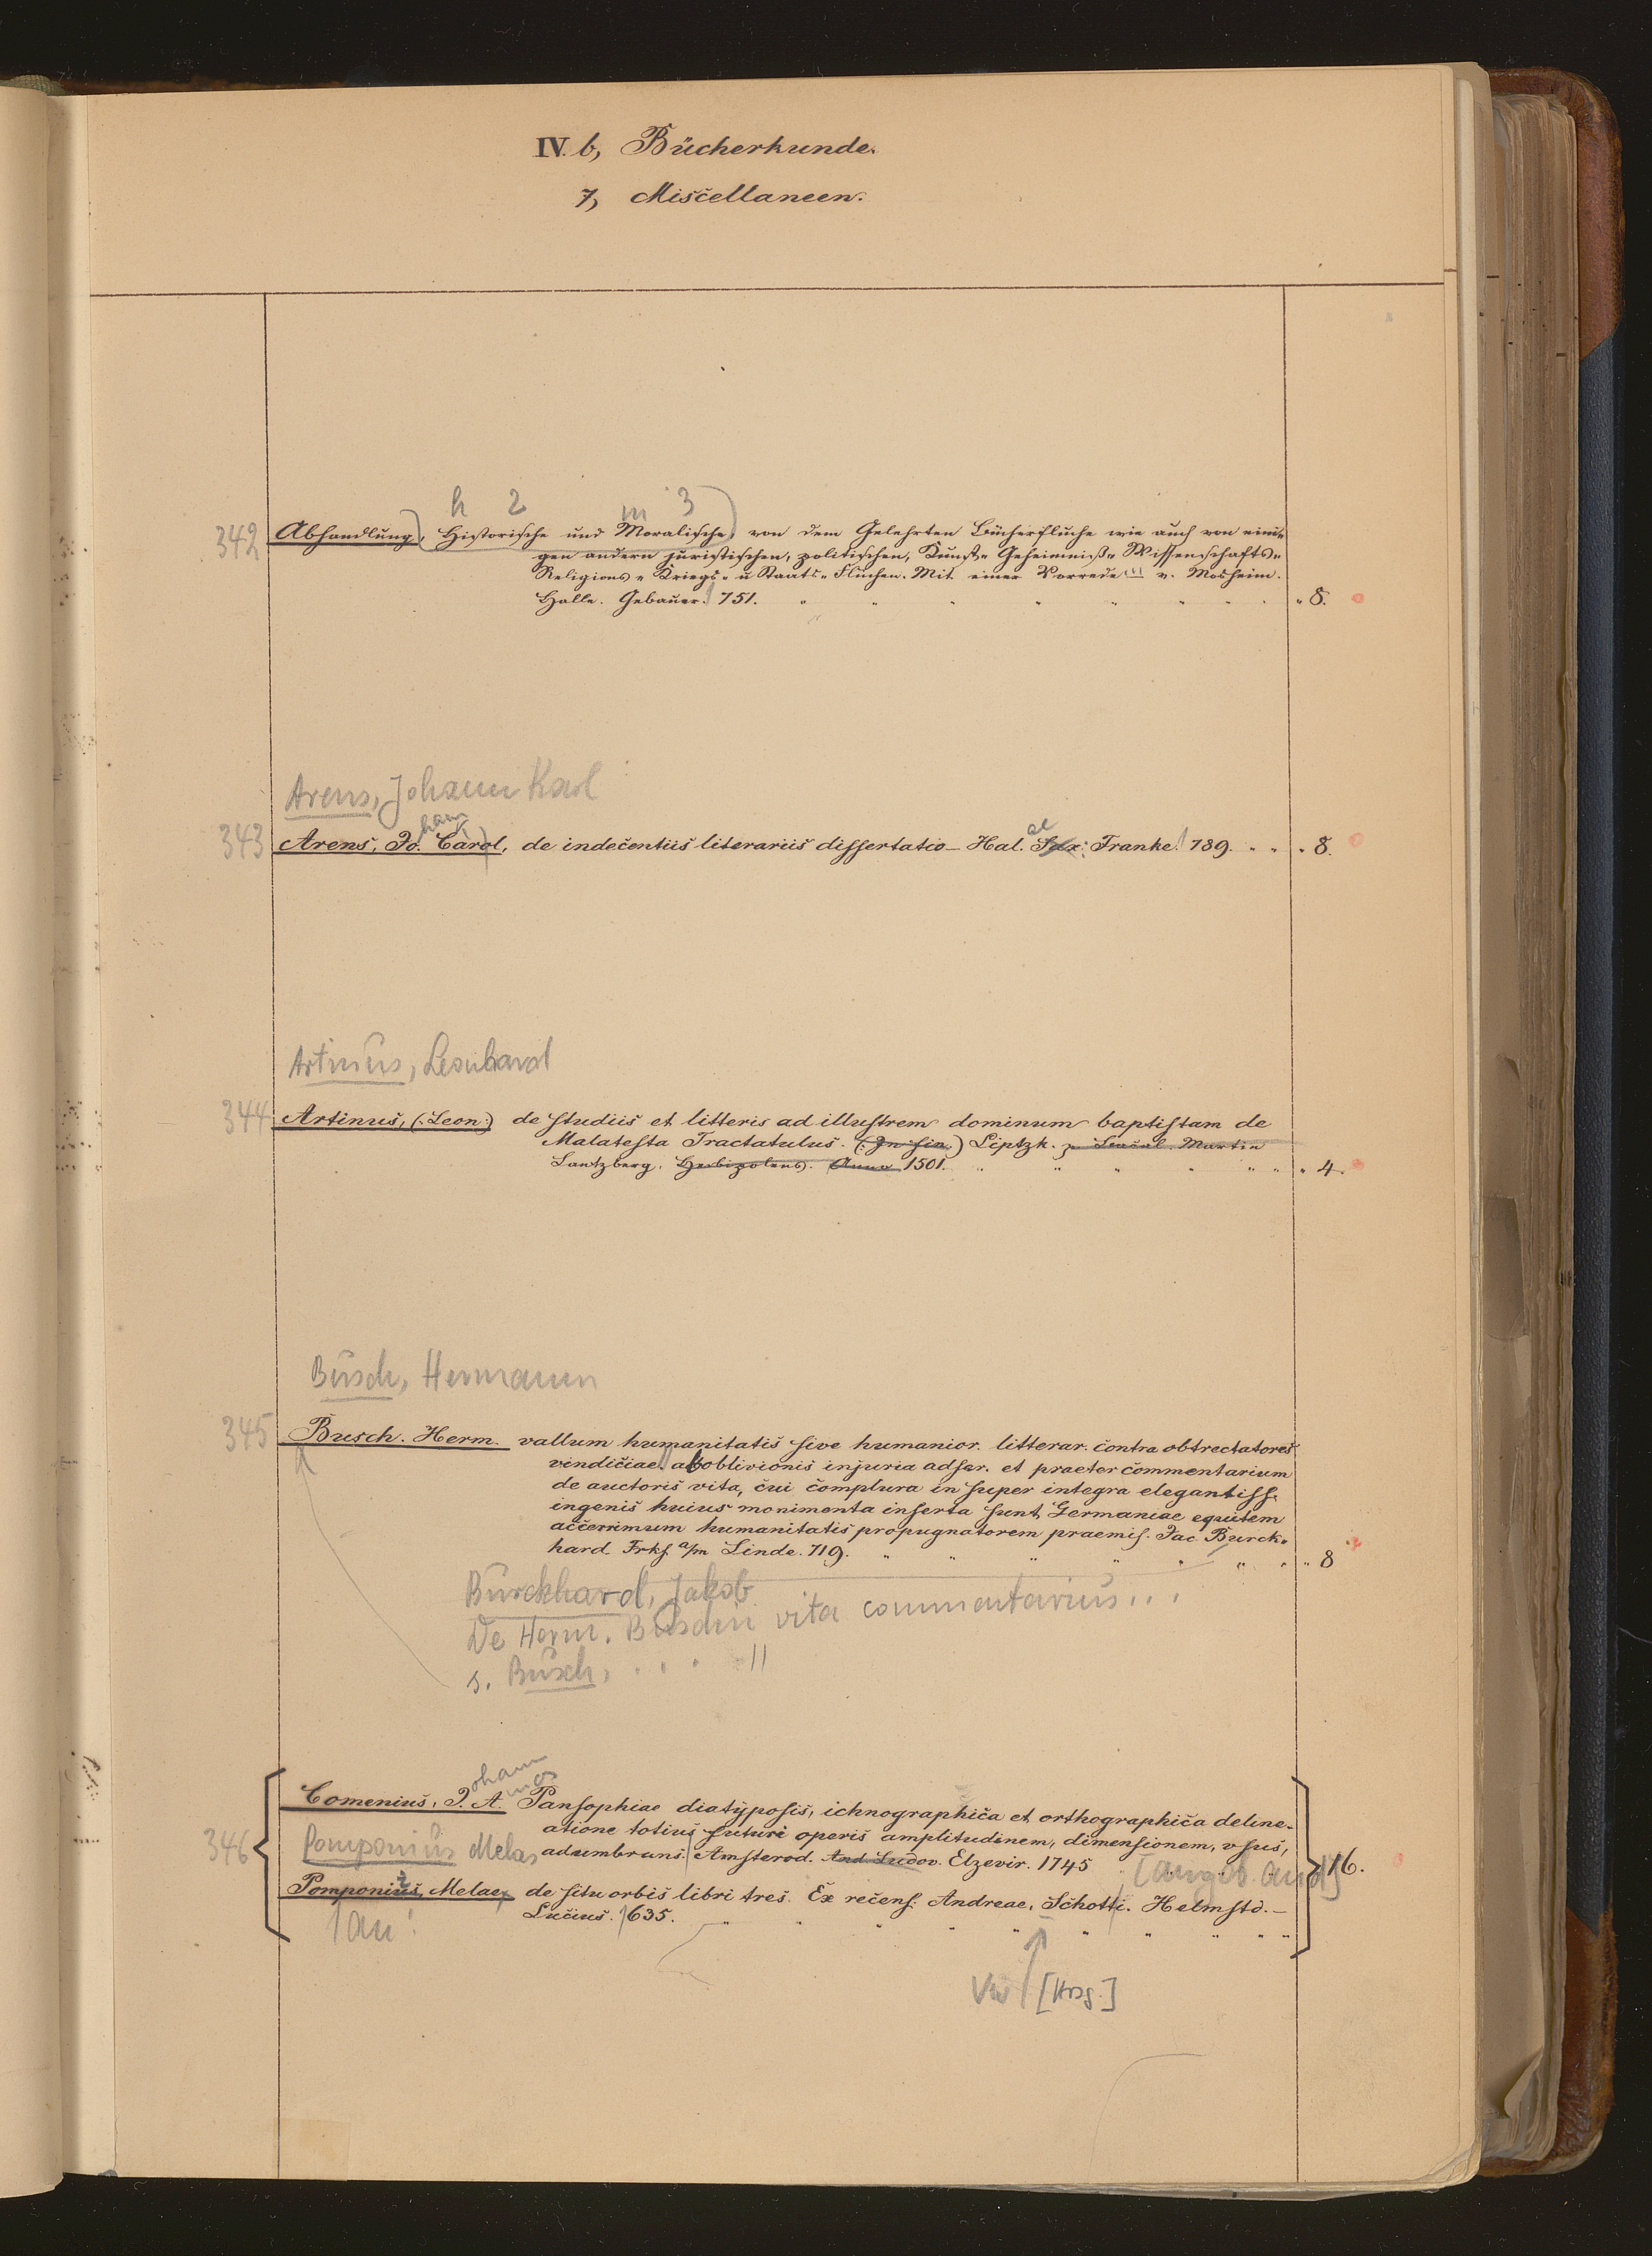 IV. b, Bücherkunde.
7, Miscellaneen.
h 2 m 3
342 Abhandlung, Historische und Moralische, von dem Gelehrten Bücherfluche wie auch von eini-
gen andern juristischen, politischen, Kunst- Geheimniß- Wissenschafts-
Religions- Kriegs- u Staats- Flüchen. Mit einer Vorrede v. Mosheim.
Halle. Gebauer. 751. 8.
Arens, Johann Karl
343 Arens, Jo. Carol, de indecentiis literariis dissertatio Hal. Sax: Franke. 739. 8.
Artinus, Leonhard
344 Artinus, (:Leon:) de studiis et litteris ad illustrem dominum baptistam de
Malatesta Tractatulus. (:In fin:) Liptzk. Martin
Lantzberg. Herbipolens. Anno 1501. 4.
Busch, Hermann
345 Busch. Herm. vallum humanitatis sive humanior. litterar. contra obtrectatores
vindiciae. ab oblivionis injuria adser. et praeter commentarium
de auctoris vita, cui complura in super integra elegantiss.
ingenis huius monimenta inserta sunt, Germaniae equitem
accerrimum humanitatis propugnatorem praemis. Jac. Burck-
hard. Frkf. a/m Linde. 719. 8
Burckhard, Jakob
De Herm. Buschii vita commentarius...
s. Busch, . . . . 11
oham
mos
Comenius, J. A. Pansophiae diatyposis, ichnographica et orthographica deline-
atione totius futuri operis amplitudinem, dimensionem, usus,
346 Pomponius Melas adumbrans. Amsterod. And. Ludov. Elzevir. 1745 [angeb. and] 16.
Pomponius, Melae, de situ orbis libri tres. Ex recens. Andreae, Schotti. Helmstd.
an! Lucius. 1635.
Vw [Hrsg.]